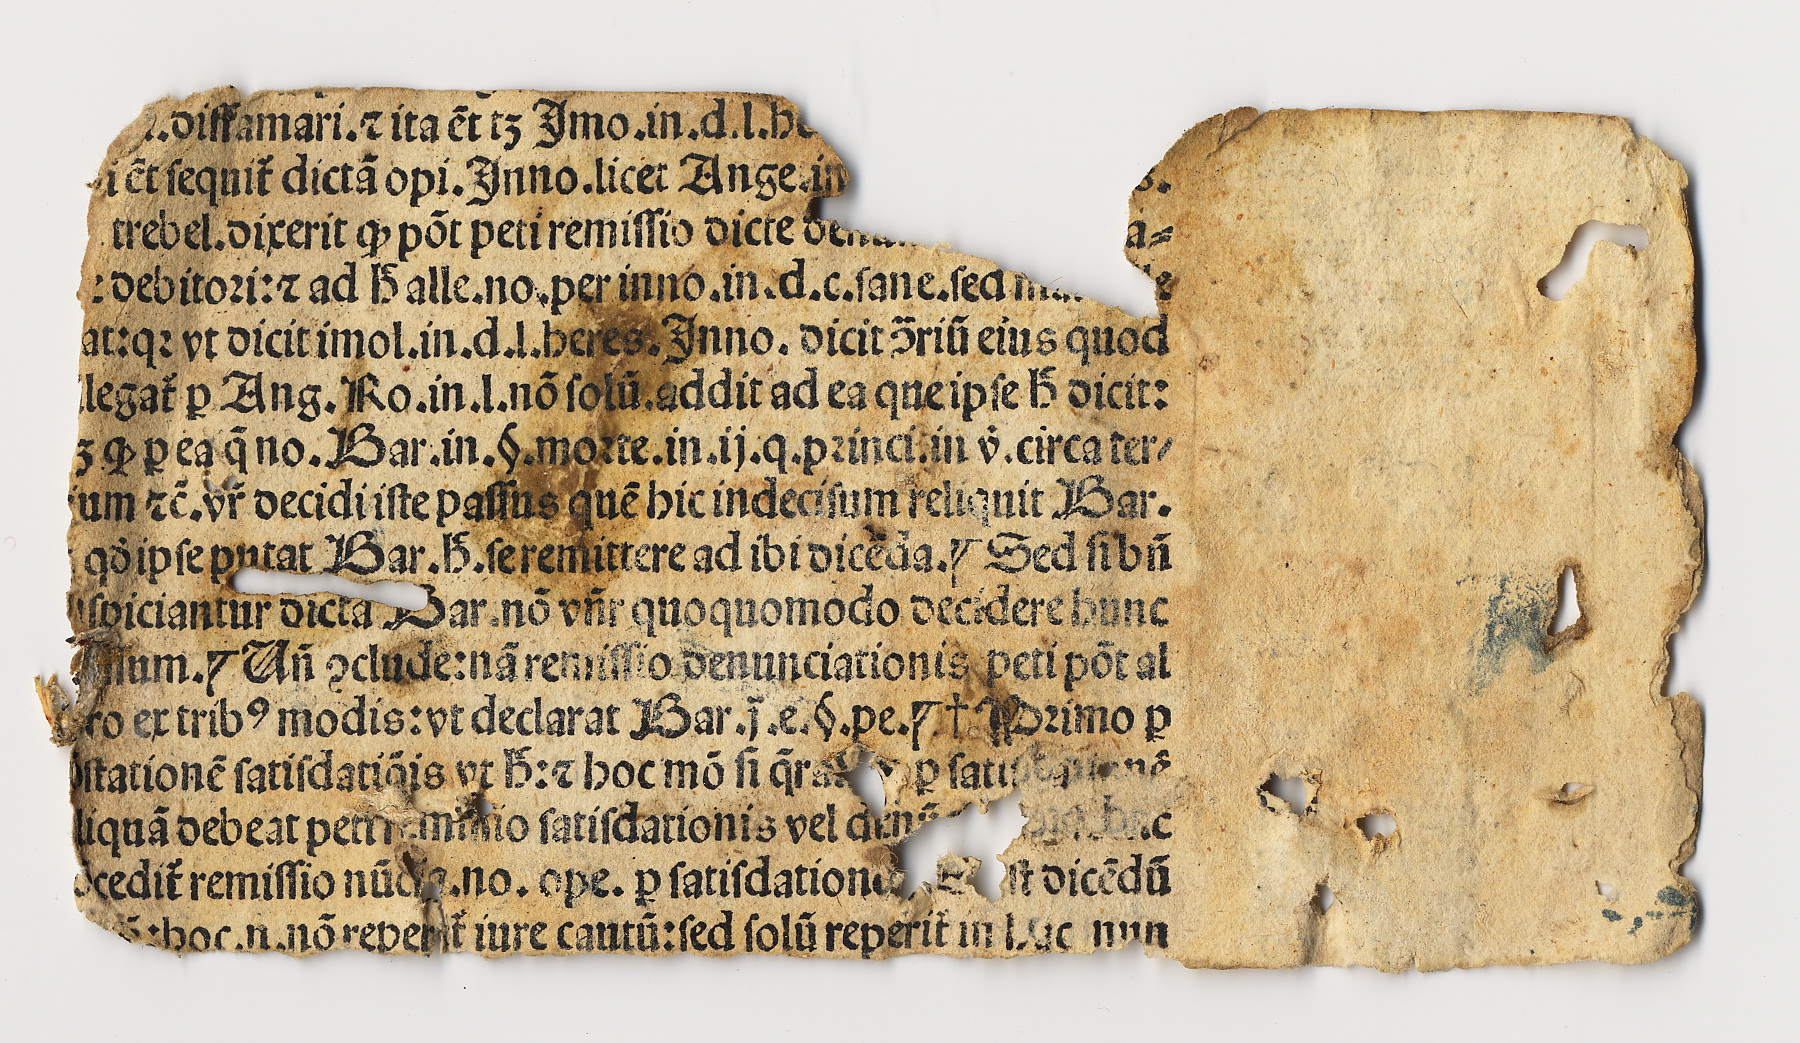 .diffamari.⁊ ita ēt tꝫ Imo.in.d.l.he
i ēt sequit̃ dictā opi.Inno.licet Ange.in s.
trebel.dixerit ꝙ pōt peti remissio dicte denun a⸗
: debitori:⁊ ad ħ alle.no.per inno.in.d.c.sane.sed
at:qꝛ vt dicit imol.in.d.l.heres.Inno. dicit ↄ̃riū eius quod
llegat̃ ꝑ Ang.Ro.in.l.nō solū.addit ad ea que ipse ħ dicit:
ꝫ ꝙ ꝑ ea q̄ no.Bar.in.§.morte.in.ij.q.princi.in v̓.circa ter/
ium ⁊c̄.vr̃ decidi iste passus quē hic indecisum reliquit Bar.
qd̓ ipse putat Bar.ħ.se remittere ad ibi dicēda.⁋ Sed si bn̄
spiciantur dicta Bar.nō vn̄r quoquomodo decidere hunc
um.⁋ Un̄ ↄclude:nā remissio denunciationis peti pōt al
ro ex tribꝰ modis:vt declarat Bar.j̄.e.§.pe.⁋ † Primo ꝑ
stationē satisdatiōis vt ħ:⁊ hoc mō si q̄ra ꝑ satisdationē
liquā debeat peti remissio satisdationis vel denū hec
cedit̃ remissio nūcia.no. ope. ꝑ satisdatione st dicēdū
:hoc.n.nō reperit̃ iure cautū:sed solū reperit̃ in huc nun